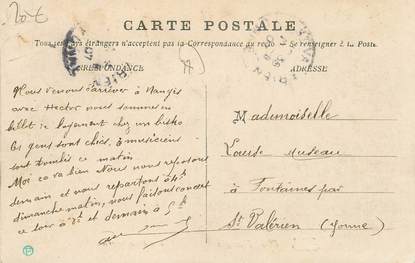 20t
CARTE POSTALE
Tous les pays étrangers n'acceptent pas la Correspondance au recto. Se renseigner à la Poste.
CORRESPONDANCE
ADRESSE
Nous venons d'arriver à Nangis
avec Hector nous sommes en
billet de logement chez un bistro
les gens sont chics. 3 musiciens
sont tombés ce matin
Moi ça va bien Nous nous reposons
demain et nous repartons à 4h
dimanche matin, nous faisons concert
ce soir à et demain à 5h
Mademoiselle
Louise
à Fontaines par
St Valérien (Yonne)